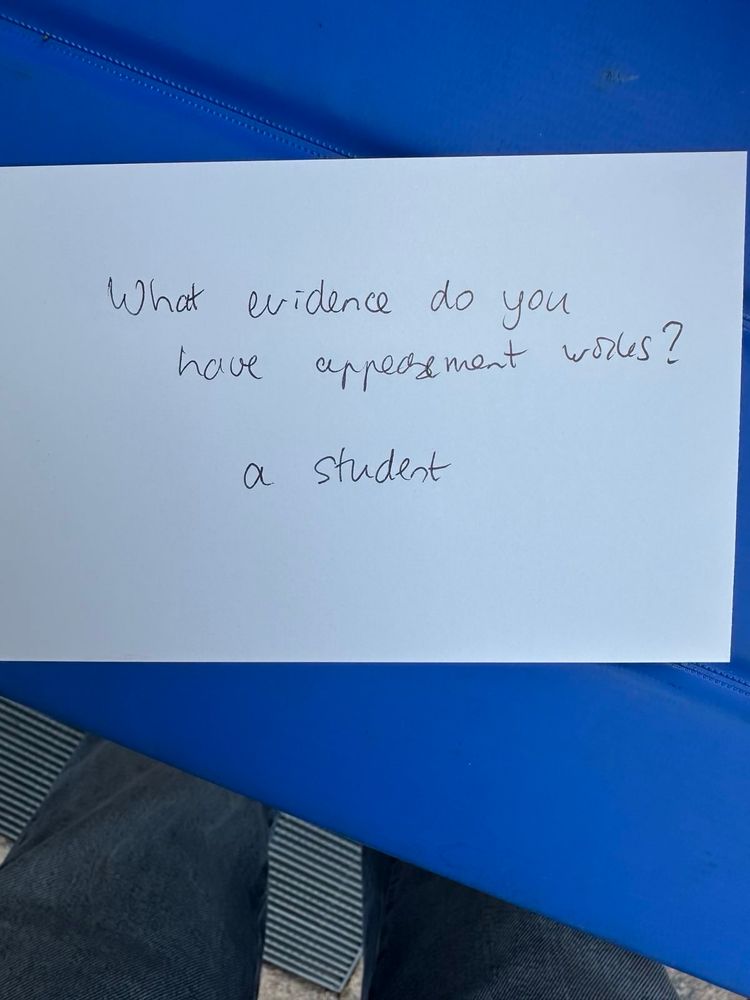 What evidence do you
have appeasement works?
a student